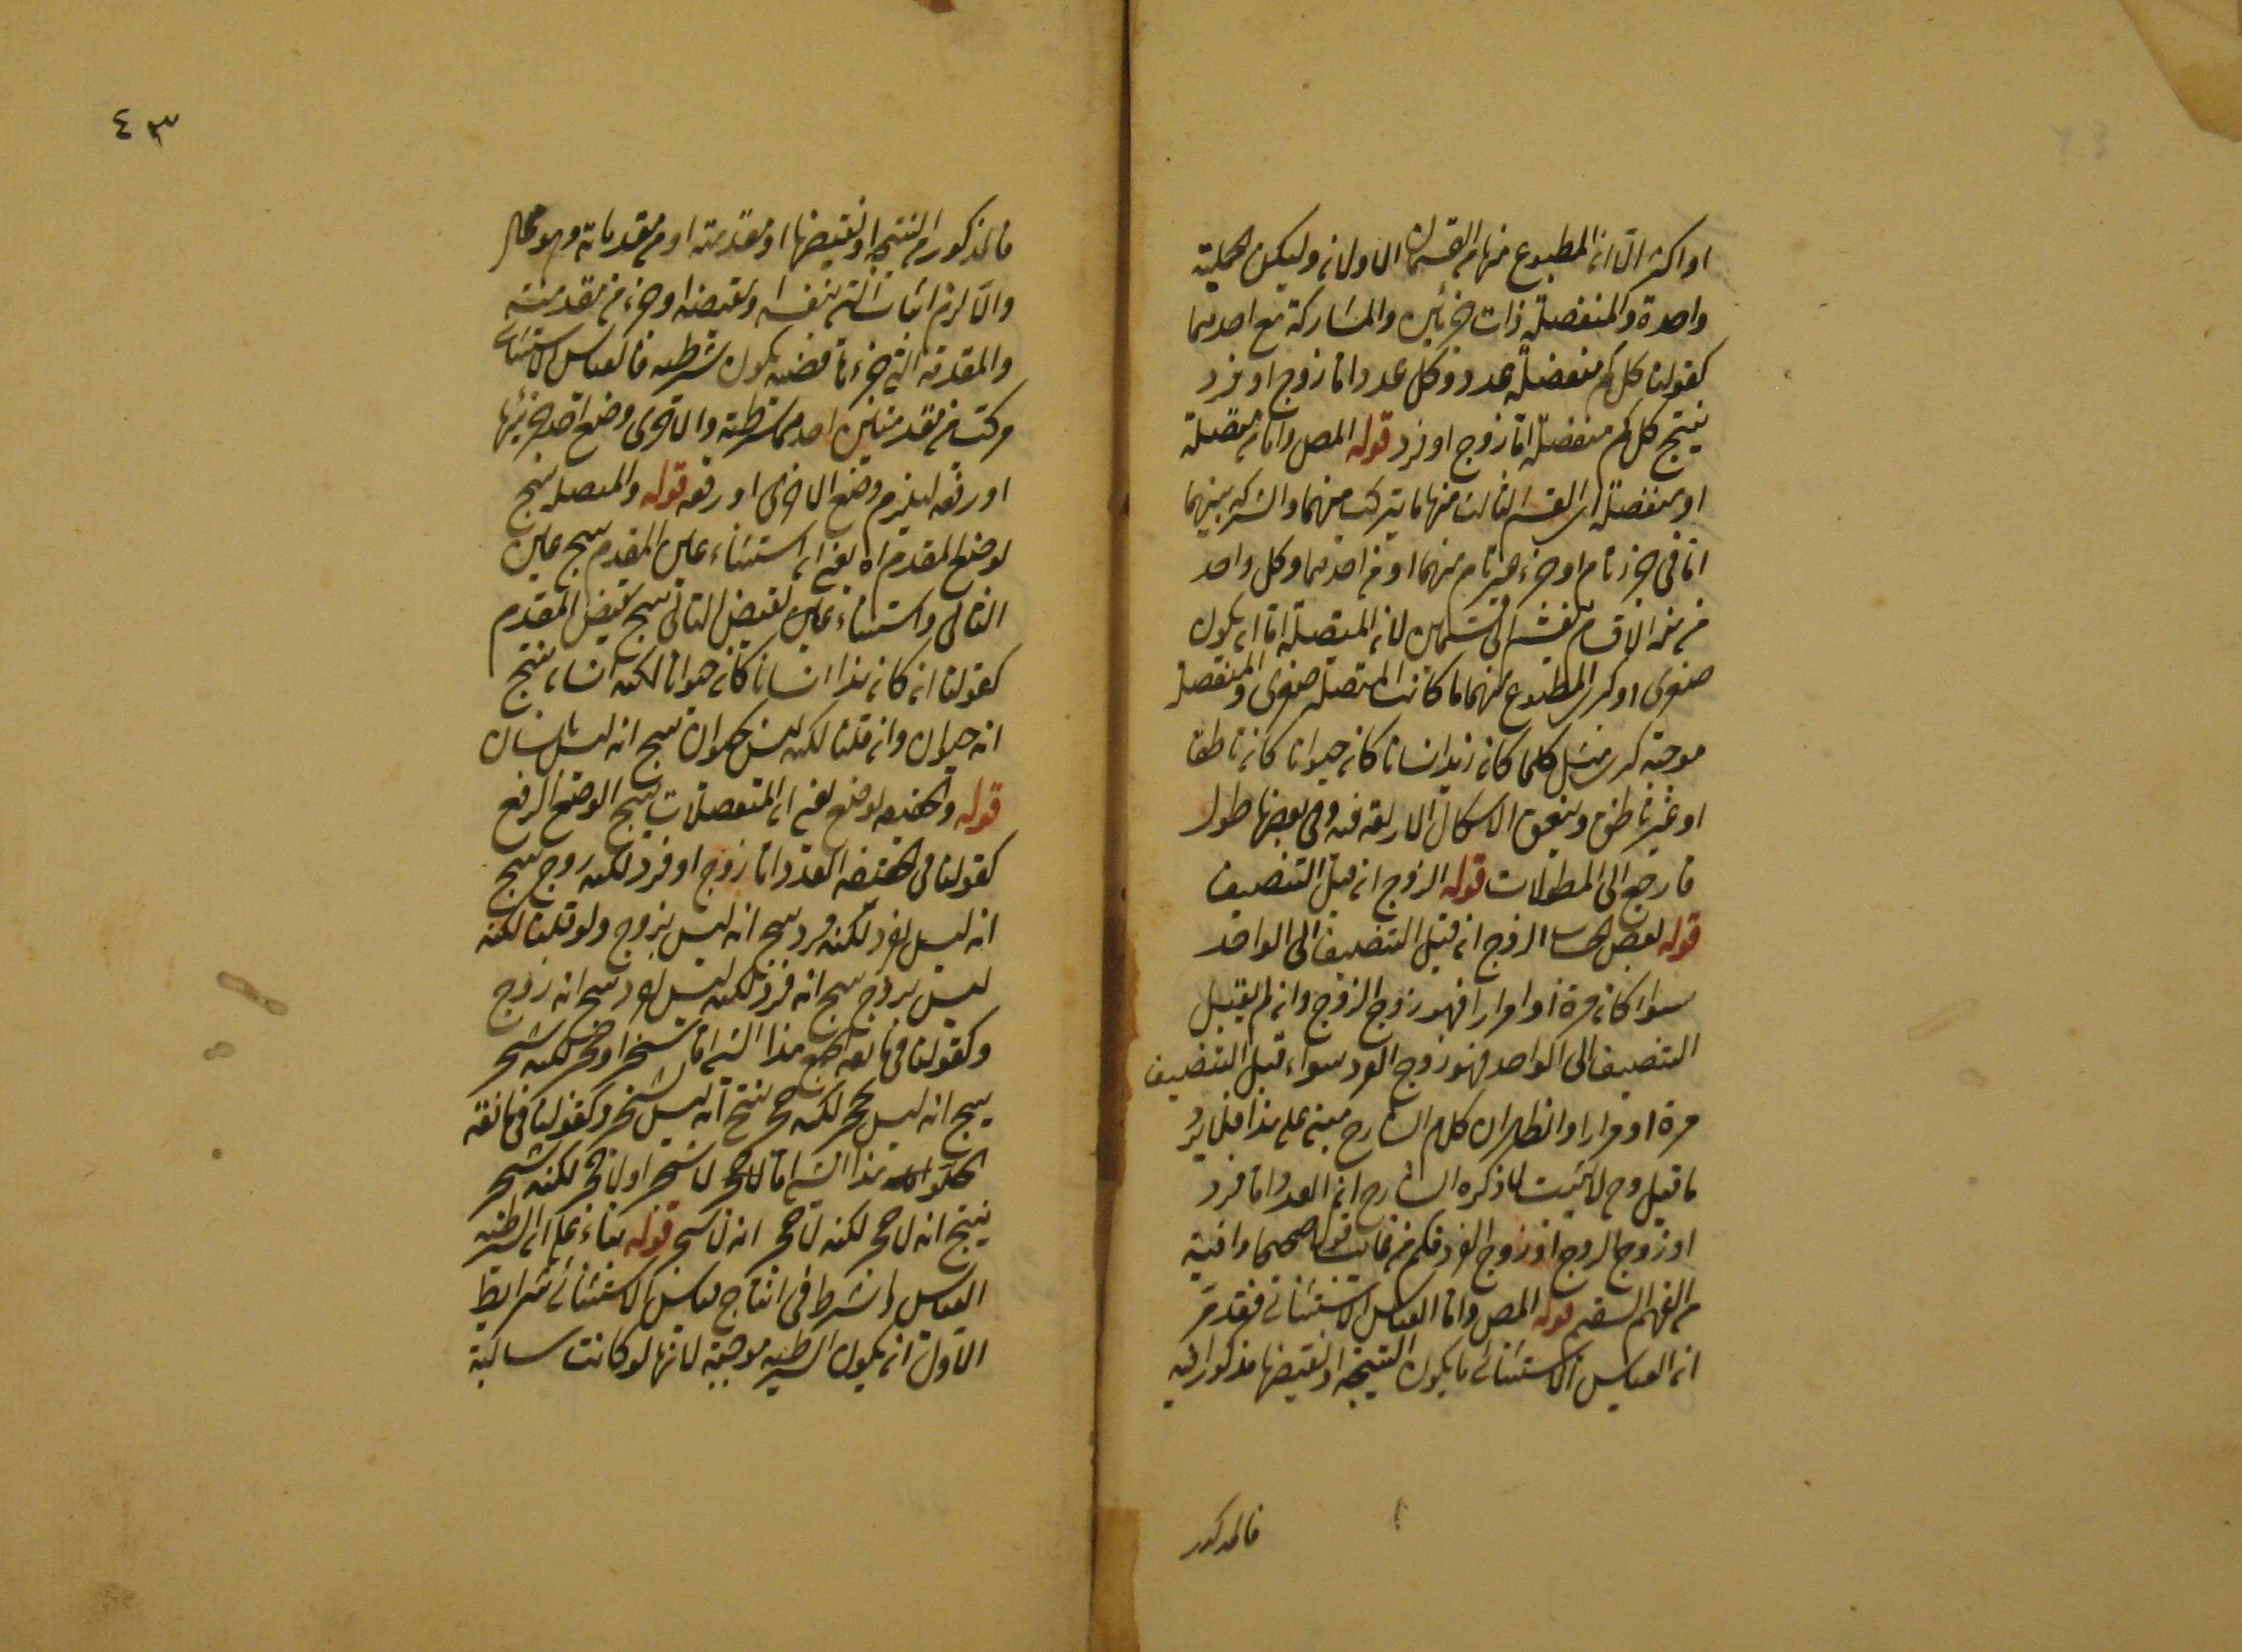 او اكثر الا ان المطبوع منها من القسمان الاولان وليكن الحملية
واحدة والمنفصلة ذات جزئين والمشاركة مع احدهما
كقولنا كل كم منفصلة عدد وكل عدد اما زوج او فرد
ينتج كل كم منفصلة اما زوج او فرد قوله المص واما من متصلة
او منفصلة اى القسم الثالث منها ما يتركب منهما والشركة بينهما
اما فى جزء تام او جزء غير تام منهما او من احدهما وكل واحد
من هذه الاقسام ينقسم الى قسمين لان المتصلة اما ان يكون
صغرى او كبرى المطبوع منهما ما كانت المتصلة صغرى والمنفصلة
موجبة كبرى مثل كلما كان زيد انسانا كان حيوانا كان ناطقا
او غير ناطق وينعقد الاشكال الاربعة فيه وفى بعضها طول
فارجع الى المطولات قوله الزوج ان قبل التنصيف
قوله بعض الحساب الزوج ان قبل التنصيف الى الواحد
سواء كان مرة او مرارا فهو زوج الزوج وان لم يقبل
التنصيف الى الواحد فهو زوج الفرد سواء قبل التنصيف
مرة او مرارا والظاهر ان كلام الشارح مبنى على هذا فلا يرد
ما قيل وح لا يثبت ما ذكره الشارح ان العدد اما فرد
او زوج الزوج او زوج الفرد فكم من غائب قولا صحيحا وافته
من الفهم السقيم قوله المص واما القياس الاستثنائى فقد مر
ان القياس الاستثنائى ما يكون النتيجة او نقيضها مذكورا فيه
فالمذكور
٤٣
فالمذكور من النتيجة او نقيضها اما مقدمة او من مقدماته وهو محال
والا لزم اثبات الشئ بنفسه او بنقيضه او جزء من مقدمته
والمقدمة التى جزءها قضية يكون شرطية فالقياس الاستثنائى
مركب من مقدمتين احديهما شرطية والاخرى وضع احد جزئيها
او رفعه ليلزم وضع الاخرى او رفعه قوله والمتصلة ينتج
لوضع المقدم اه يعنى ان استثناء عين المقدم ينتج عين
التالى واستثناء عين نقيض التالى ينتج نقيض المقدم
كقولنا ان كان هذا انسانا كان حيوانا لكنه انسان ينتج
انه حيوان وان قلنا لكنه ليس بحيوان ينتج انه ليس بانسان
قوله والحقيقية لوضع يعنى ان المنفصلات ينتج الوضع الرفع
كقولنا فى الحقيقية العدد اما زوج او فرد لكنه زوج ينتج
انه ليس بفرد لكنه فرد ينتج انه ليس بزوج ولو قلنا لكنه
ليس بزوج ينتج انه فرد لكنه ليس بفرد ينتج انه زوج
وكقولنا فى مانعة الجمع هذا الشئ اما شجر او حجر لكنه شجر
ينتج انه ليس بحجر لكنه حجر ينتج انه ليس بشجر وكقولنا فى مانعة
الخلو هذا الشئ اما لا شجر او لا حجر لكنه شجر
ينتج انه لا حجر لكنه حجر انه لا شجر قوله بناء على ان الشرطية
القياس واشترط فى انتاج قياس الاستثنائى شرايط
الاول ان يكون الشرطية موجبة لانها لو كانت سالبة